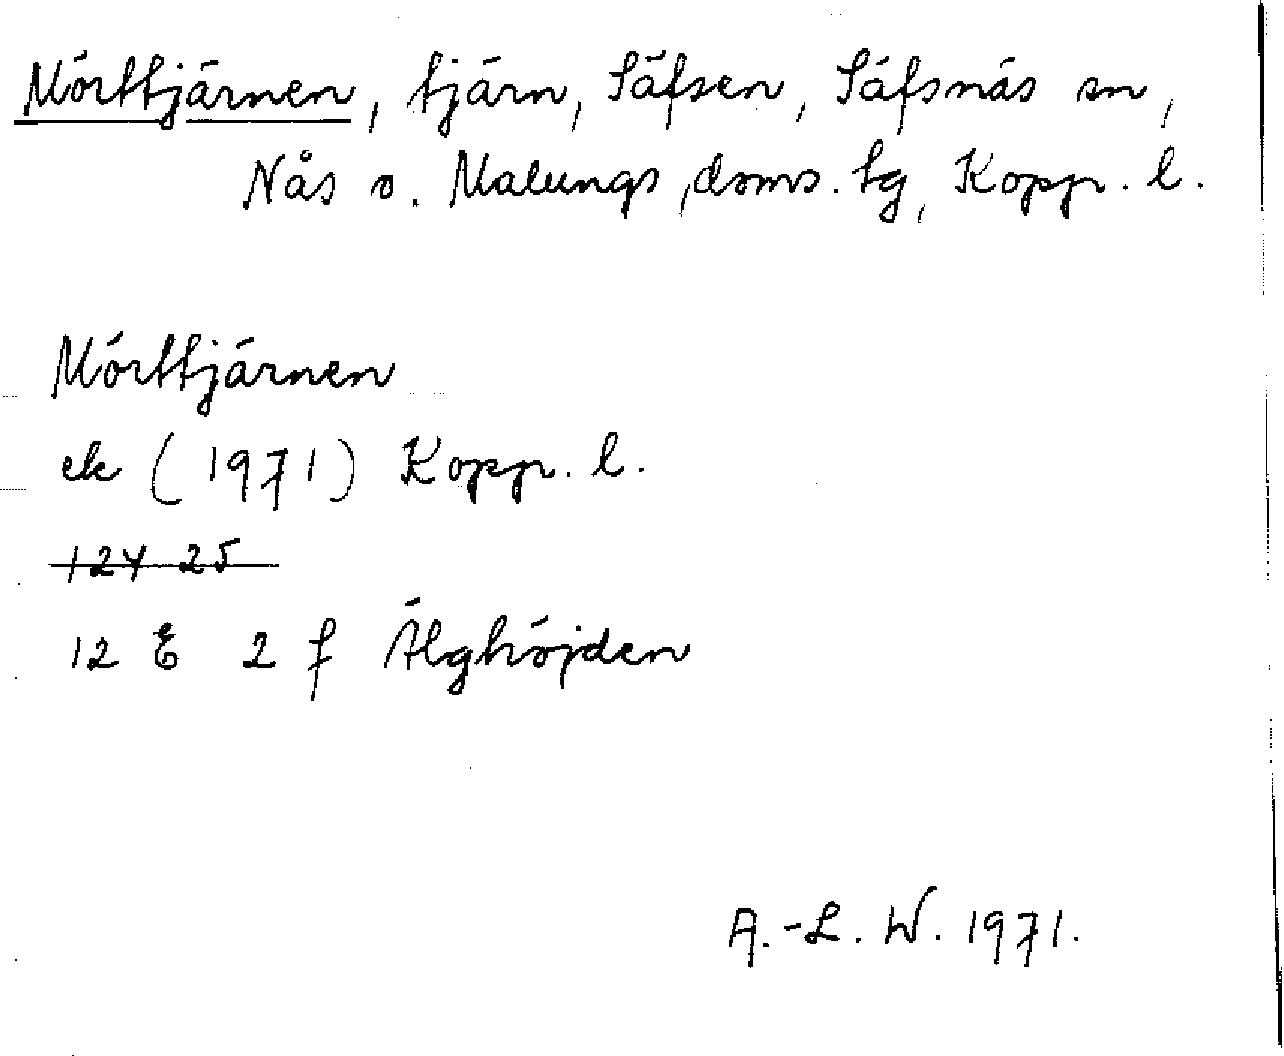 Mörttjärnen, tjärn, Säfsen, Säfsnäs sn,
Nås o. Malungs doms. tg, Kopp. l.
Mörttjärnen
ek (1971) Kopp. l.
12Y 25
12 E 2 f Älghöjden
A.-L. W. 1971.